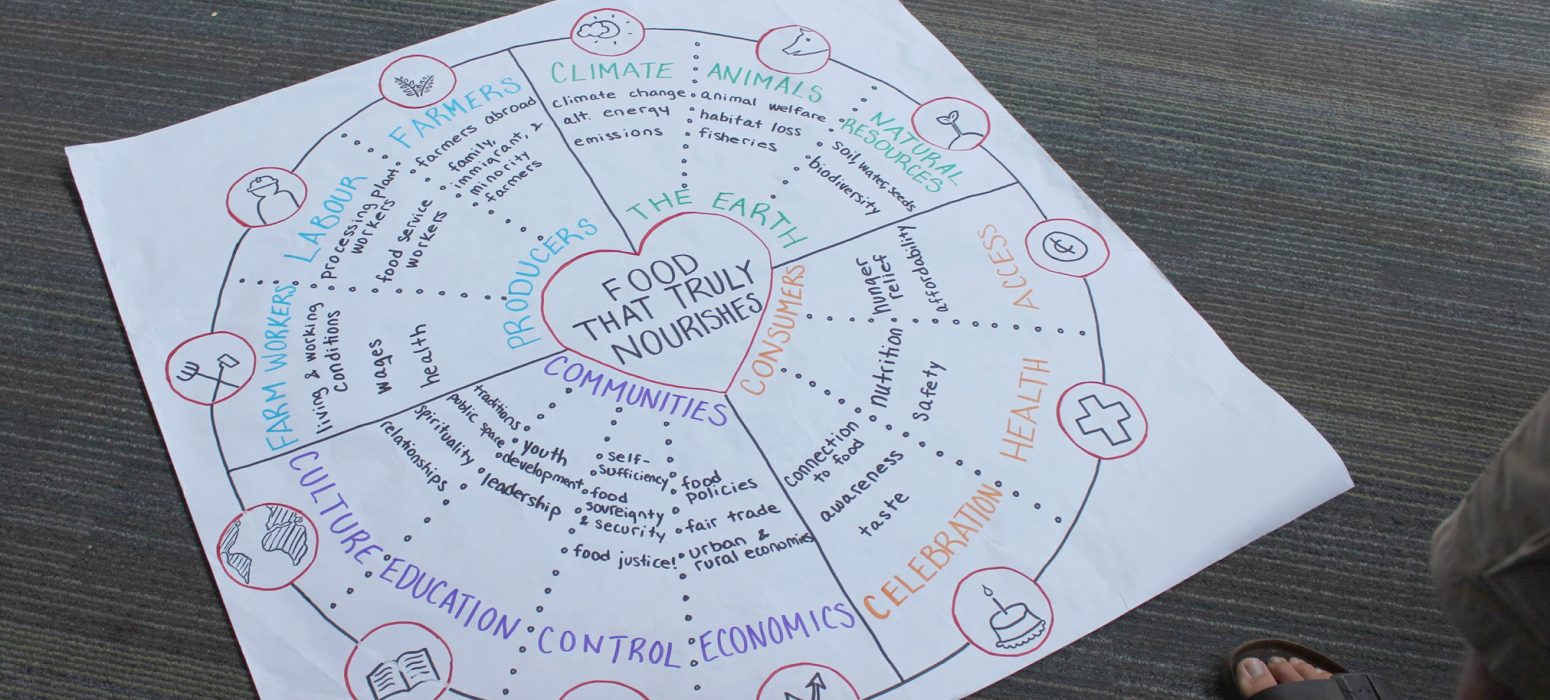 FOOD
THAT TRULY
NOURISHES
THE EARTH
CLIMATE
climate change
alt. energy
emissions
ANIMALS
animal welfare
habitat loss
fisheries
NATURAL
RESOURCES
soil, water, seeds
biodiversity
CONSUMERS
ACCESS
hunger
relief
affordability
HEALTH
nutrition
safety
CELEBRATION
connection
to food
awareness
taste
COMMUNITIES
ECONOMICS
food
policies
fair trade
urban &
rural economies
CONTROL
self-
sufficiency
food
sovreignty
& security
food justice!
EDUCATION
youth
development
leadership
CULTURE
traditions
public space
spirituality
relationships
PRODUCERS
FARM WORKERS
living & working
conditions
wages
health
LABOUR
processing plant
workers
food service
workers
FARMERS
farmers abroad
family,
immigrant, &
minority
farmers